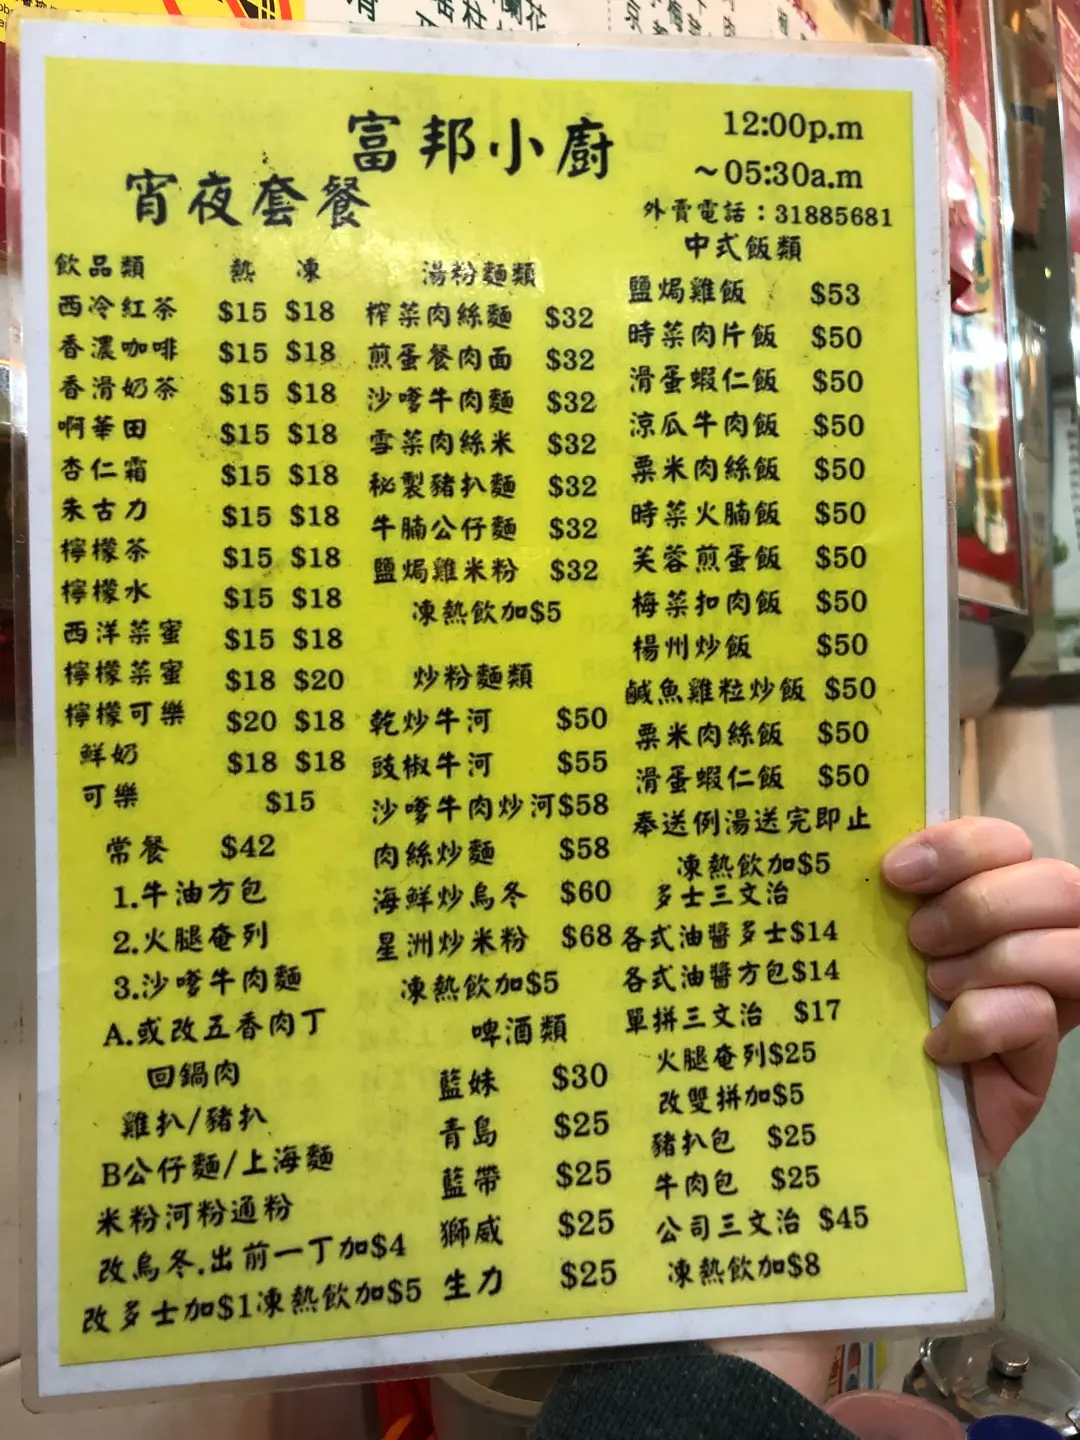 富邦小廚
宵夜套餐
12:00p.m
~05:30a.m
外賣電話：31885681
飲品類 熱 凍
西冷紅茶 $15 $18
香濃咖啡 $15 $18
香滑奶茶 $15 $18
啊華田 $15 $18
杏仁霜 $15 $18
朱古力 $15 $18
檸檬茶 $15 $18
檸檬水 $15 $18
西洋菜蜜 $15 $18
檸檬菜蜜 $18 $20
檸檬可樂 $20 $18
鮮奶 $18 $18
可樂 $15
常餐 $42
1.牛油方包
2.火腿奄列
3.沙嗲牛肉麵
A.或改五香肉丁
回鍋肉
雞扒/豬扒
B公仔麵/上海麵
米粉河粉通粉
改烏冬.出前一丁加$4
改多士加$1凍熱飲加$5
湯粉麵類
榨菜肉絲麵 $32
煎蛋餐肉面 $32
沙嗲牛肉麵 $32
雪菜肉絲米 $32
秘製豬扒麵 $32
牛腩公仔麵 $32
鹽焗雞米粉 $32
凍熱飲加$5
炒粉麵類
乾炒牛河 $50
豉椒牛河 $55
沙嗲牛肉炒河$58
肉絲炒麵 $58
海鮮炒烏冬 $60
星洲炒米粉 $68
凍熱飲加$5
啤酒類
藍妹 $30
青島 $25
藍帶 $25
獅威 $25
生力 $25
中式飯類
鹽焗雞飯 $53
時菜肉片飯 $50
滑蛋蝦仁飯 $50
涼瓜牛肉飯 $50
粟米肉絲飯 $50
時菜火腩飯 $50
芙蓉煎蛋飯 $50
梅菜扣肉飯 $50
楊州炒飯 $50
鹹魚雞粒炒飯 $50
粟米肉絲飯 $50
滑蛋蝦仁飯 $50
奉送例湯送完即止
凍熱飲加$5
多士三文治
各式油醬多士$14
各式油醬方包$14
單拼三文治 $17
火腿奄列$25
改雙拼加$5
豬扒包 $25
牛肉包 $25
公司三文治 $45
凍熱飲加$8